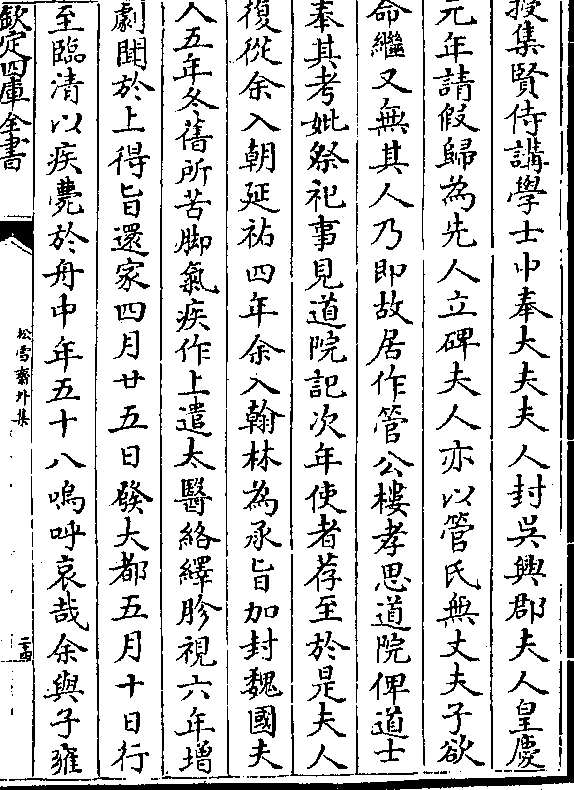 授集賢侍講學士中奉大夫夫人封吳興郡夫人皇慶
元年請假歸為先人立碑夫人亦以管氏無丈夫子欲
命繼又無其人乃即故居作管公樓孝思道院俾道士
奉其考妣祭祀事見道院記次年使者荐至於是夫人
復從余入朝延祐四年余入翰林為承旨加封魏國夫
人五年冬舊所苦脚氣疾作上遣太醫絡繹胗視六年增
劇聞於上得旨還家四月廿五日發大都五月十日行
至臨清以疾薨於舟中年五十八嗚呼哀哉余與子雍
欽定四庫全書
松雪齋外集
二十四